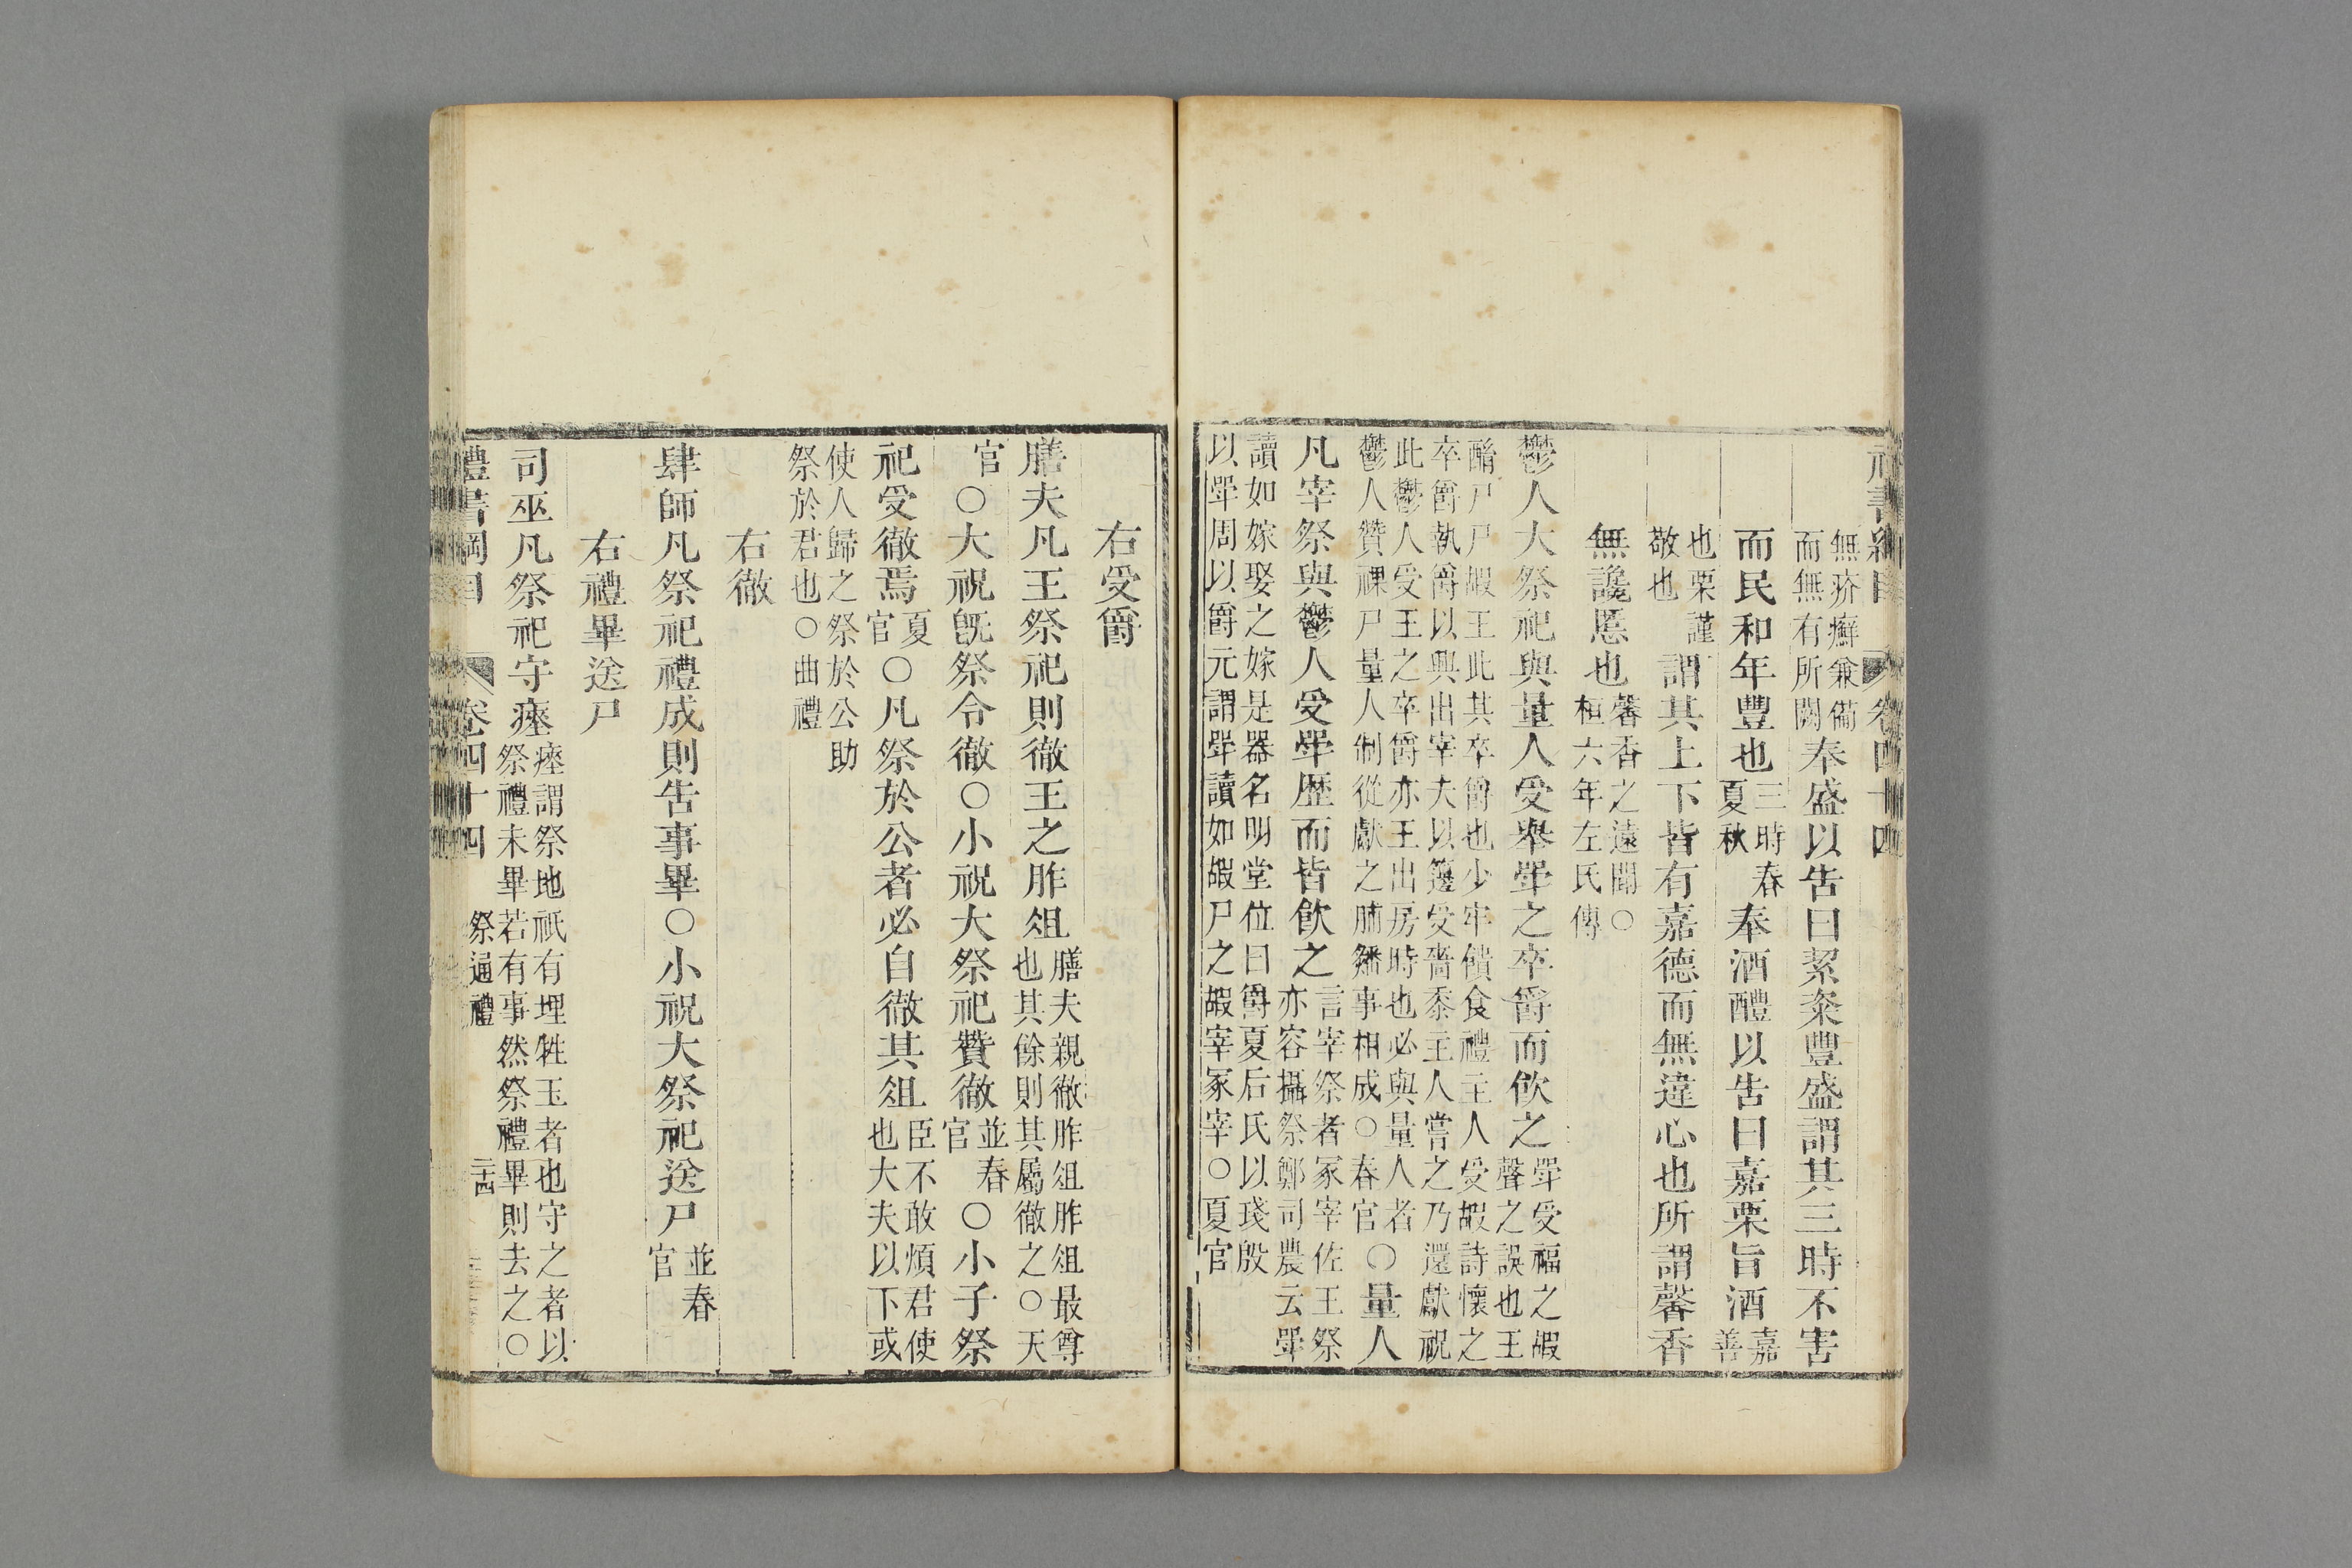 禮書綱目 卷四十四
無疥癬兼備而無有所闕奉盛以告曰絜粢豐盛謂其三時不害
而民和年豐也三時春夏秋奉酒醴以告曰嘉栗旨酒嘉善
也栗謹敬也謂其上下皆有嘉德而無違心也所謂馨香
無讒慝也馨香之遠聞○桓六年左氏傳
鬱人大祭祀與量人受舉斝之卒爵而飲之斝受福之嘏聲之誤也王
酳尸尸嘏王此其卒爵也少牢饋食禮主人受嘏詩懷之
卒爵執爵以興出宰夫以籩受嗇黍主人嘗之乃還獻祝
此鬱人受王之卒爵亦王出房時也必與量人者
鬱人贊祼尸量人制從獻之脯燔事相成○春官○量人
凡宰祭與鬱人受斝歷而皆飲之言宰祭者冢宰佐王祭亦容攝祭鄭司農云斝
讀如嫁娶之嫁斝是器名明堂位曰爵夏后氏以琖殷
以斝周以爵元謂斝讀如嘏尸之嘏宰冢宰○夏官
右受爵
膳夫凡王祭祀則徹王之胙俎膳夫親徹胙俎胙俎最尊也其餘則其屬徹之○天
官○大祝旣祭令徹○小祝大祭祀贊徹並春官○小子祭
祀受徹焉夏官○凡祭於公者必自徹其俎臣不敢煩君使也大夫以下或
使人歸之祭於公助祭於君也○曲禮
右徹
肆師凡祭祀禮成則告事畢○小祝大祭祀送尸並春官
右禮畢送尸
司巫凡祭祀守瘞瘞謂祭地祇有埋牲玉者也守之者以祭禮未畢若有事然祭禮畢則去之○
禮書綱目 卷四十四 祭通禮 二十四